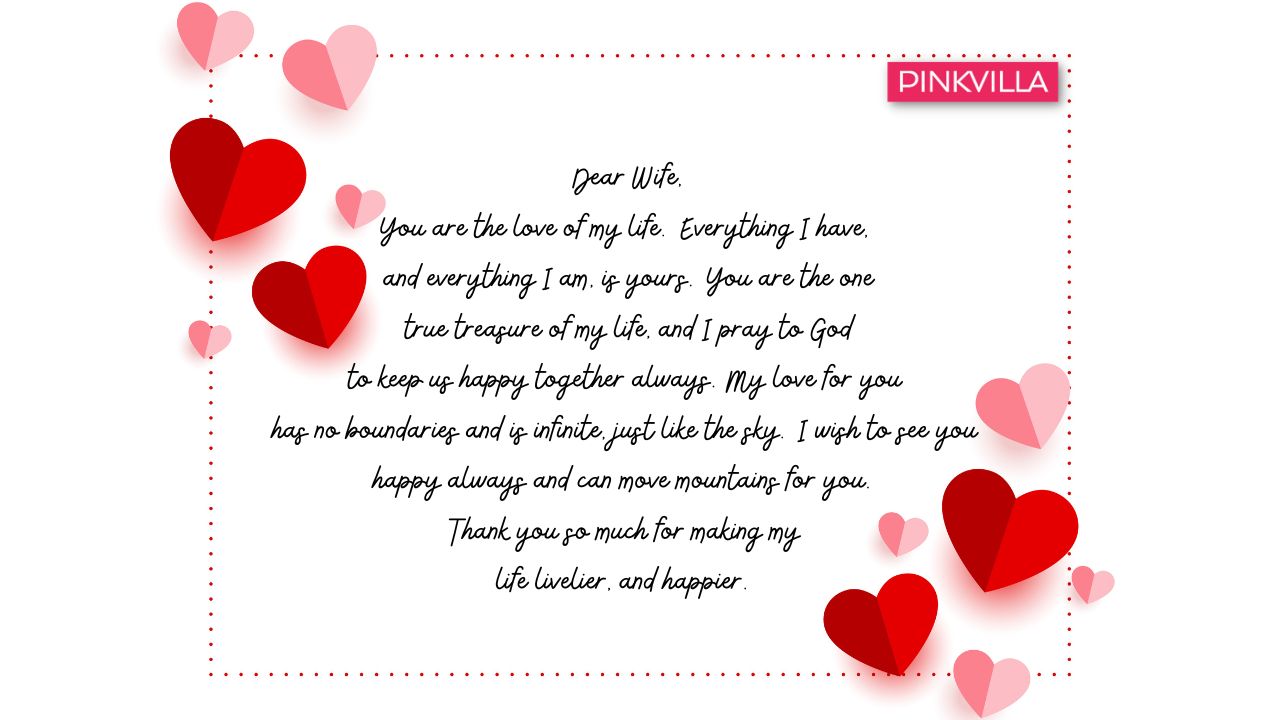 PINKVILLA
Dear Wife,
You are the love of my life. Everything I have,
and everything I am, is yours. You are the one
true treasure of my life, and I pray to God
to keep us happy together always. My love for you
has no boundaries and is infinite, just like the sky. I wish to see you
happy always and can move mountains for you.
Thank you so much for making my
life livelier, and happier.